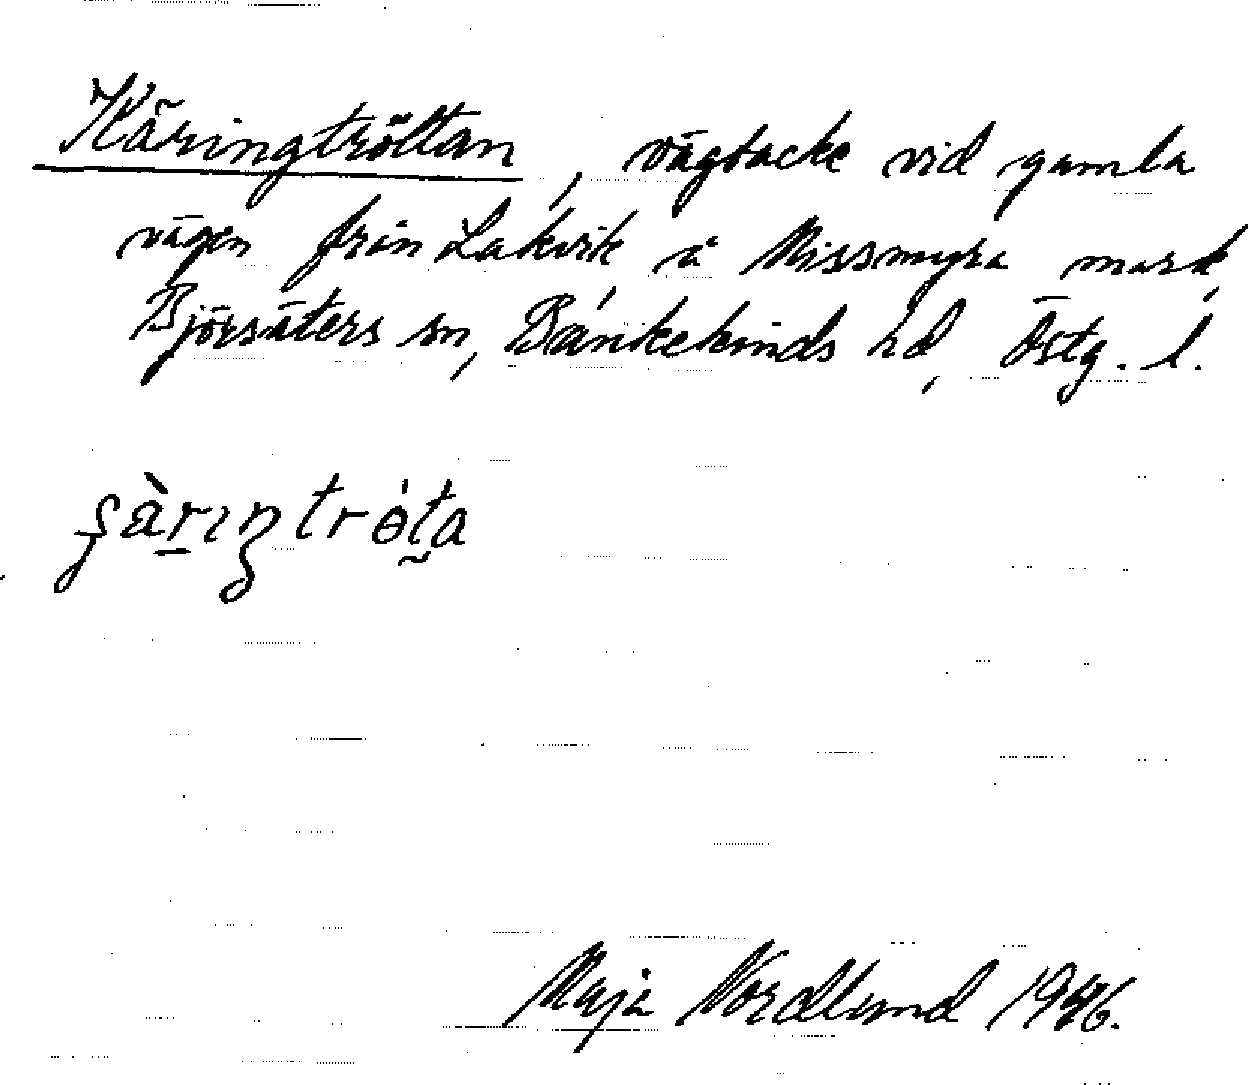 Käringtröttan, vägbacke vid gamla
vägen från Lakvik, å Missmyra mark,
Björsäters sn, Bankekinds hd, Östg. l.
Maja Nordlund 1946.